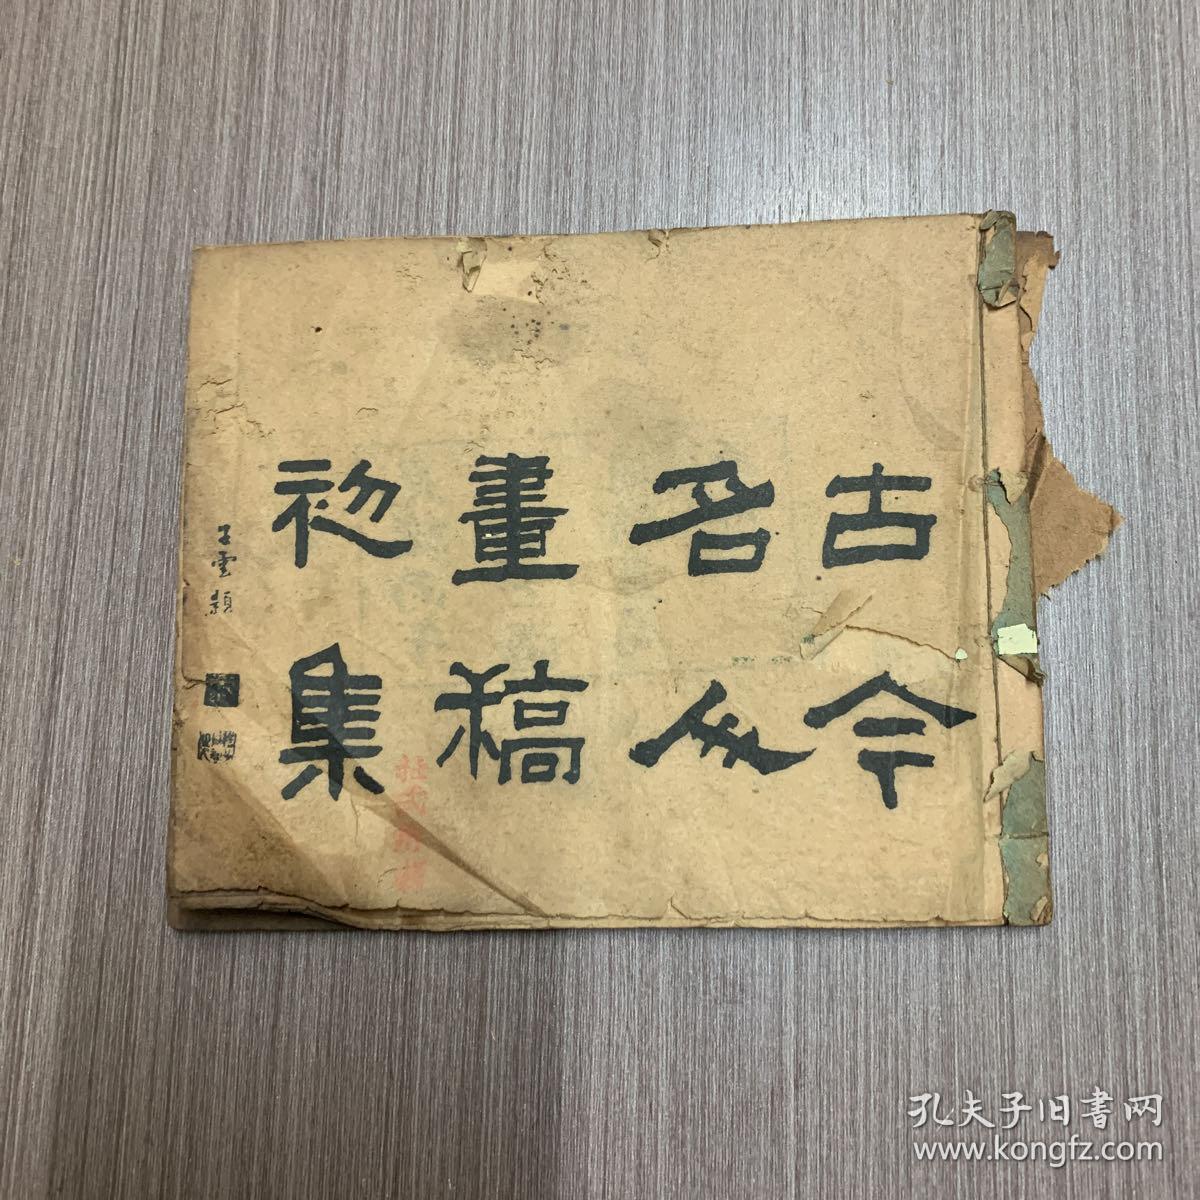 古今
名人
畫稿
初集
子雲題
杜氏
孔夫子旧書网
www.kongfz.com